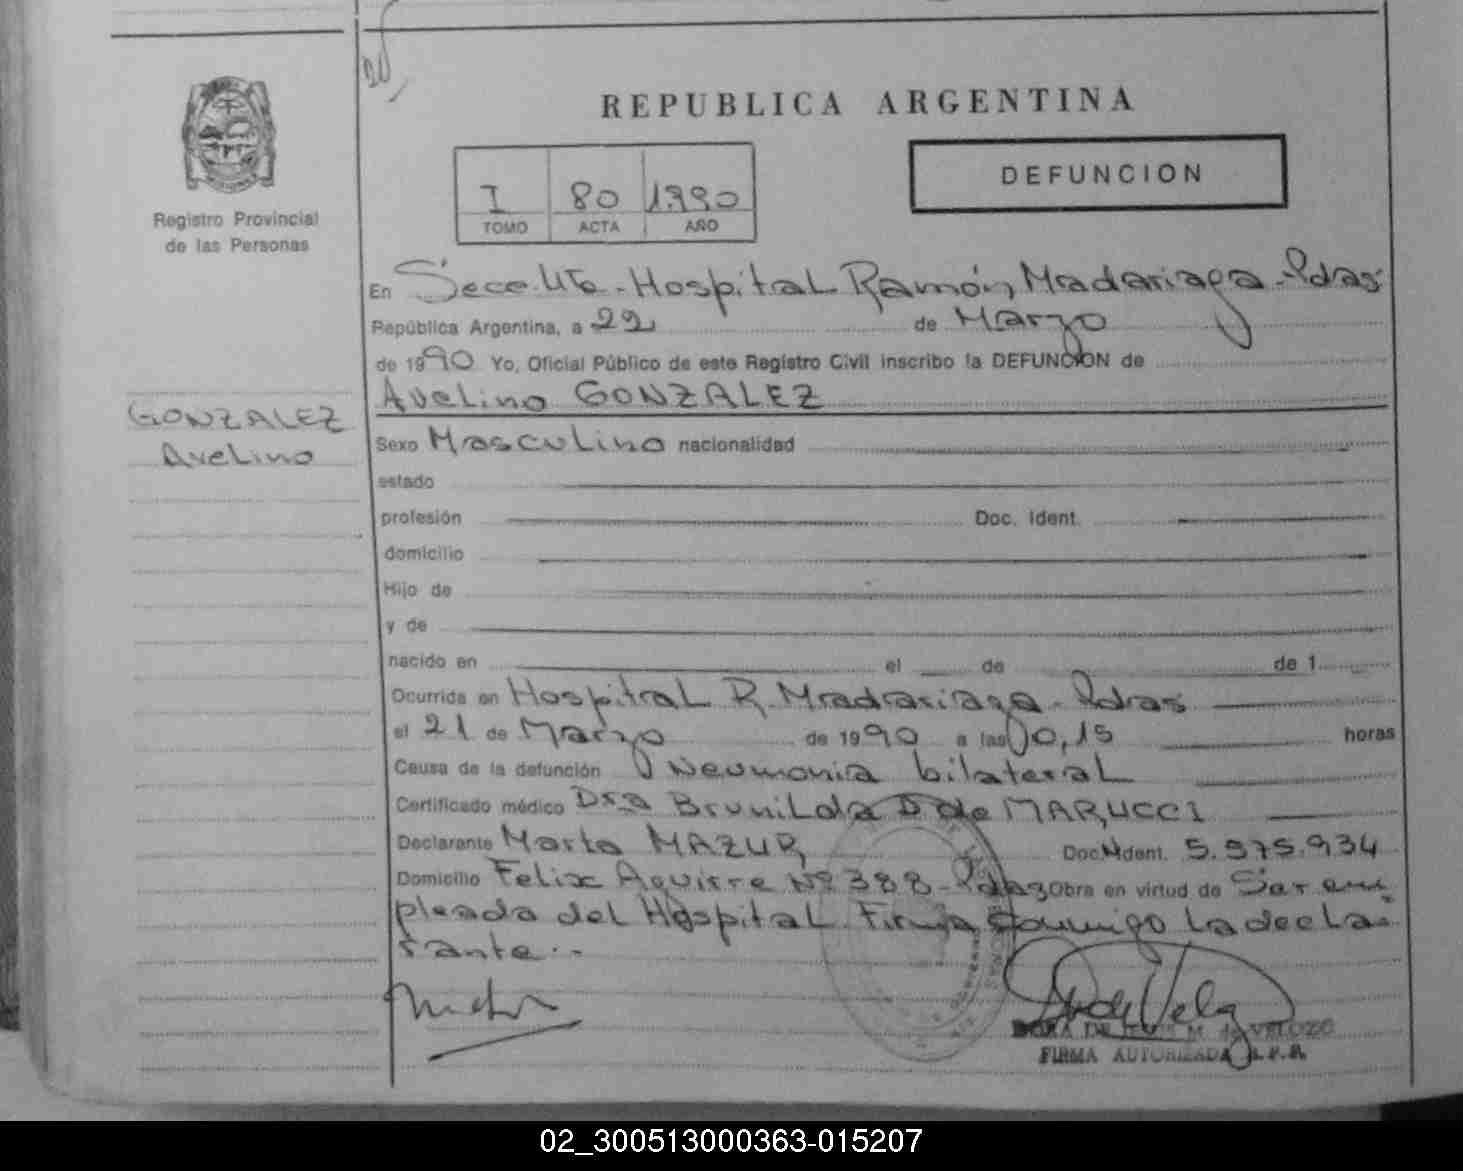 REPUBLICA ARGENTINA
DEFUNCION
I 80 1.990
TOMO ACTA AÑO
Registro Provincial
de las Personas
En Secc. Hospital Ramón Madariaga - Pdas
República Argentina, a 22 de Marzo
de 1990 Yo, Oficial Público de este Registro Civil inscribo la DEFUNCION de
Avelino GONZALEZ
GONZALEZ
Avelino
Sexo Masculino nacionalidad
estado
profesión Doc. Ident.
domicilio
Hijo de
y de
nacido en el de de 1
Ocurrida en Hospital R. Madariaga - Pdas
el 21 de Marzo de 1990 a las 00,15 horas
Causa de la defunción Neumonia bilateral
Certificado médico Dra Brunilda D de MARUCCI
Declarante Marta MAZUR Doc. Ident. 5.575.934
Domicilio Felix Aguirre Nº 388 - Pdas Obra en virtud de Ser em
pleada del Hospital. Firma conmigo la decla-
rante.-
DORA DE JESUS M. de VELOZO
FIRMA AUTORIZADA R.P.P.
02_300513000363-015207